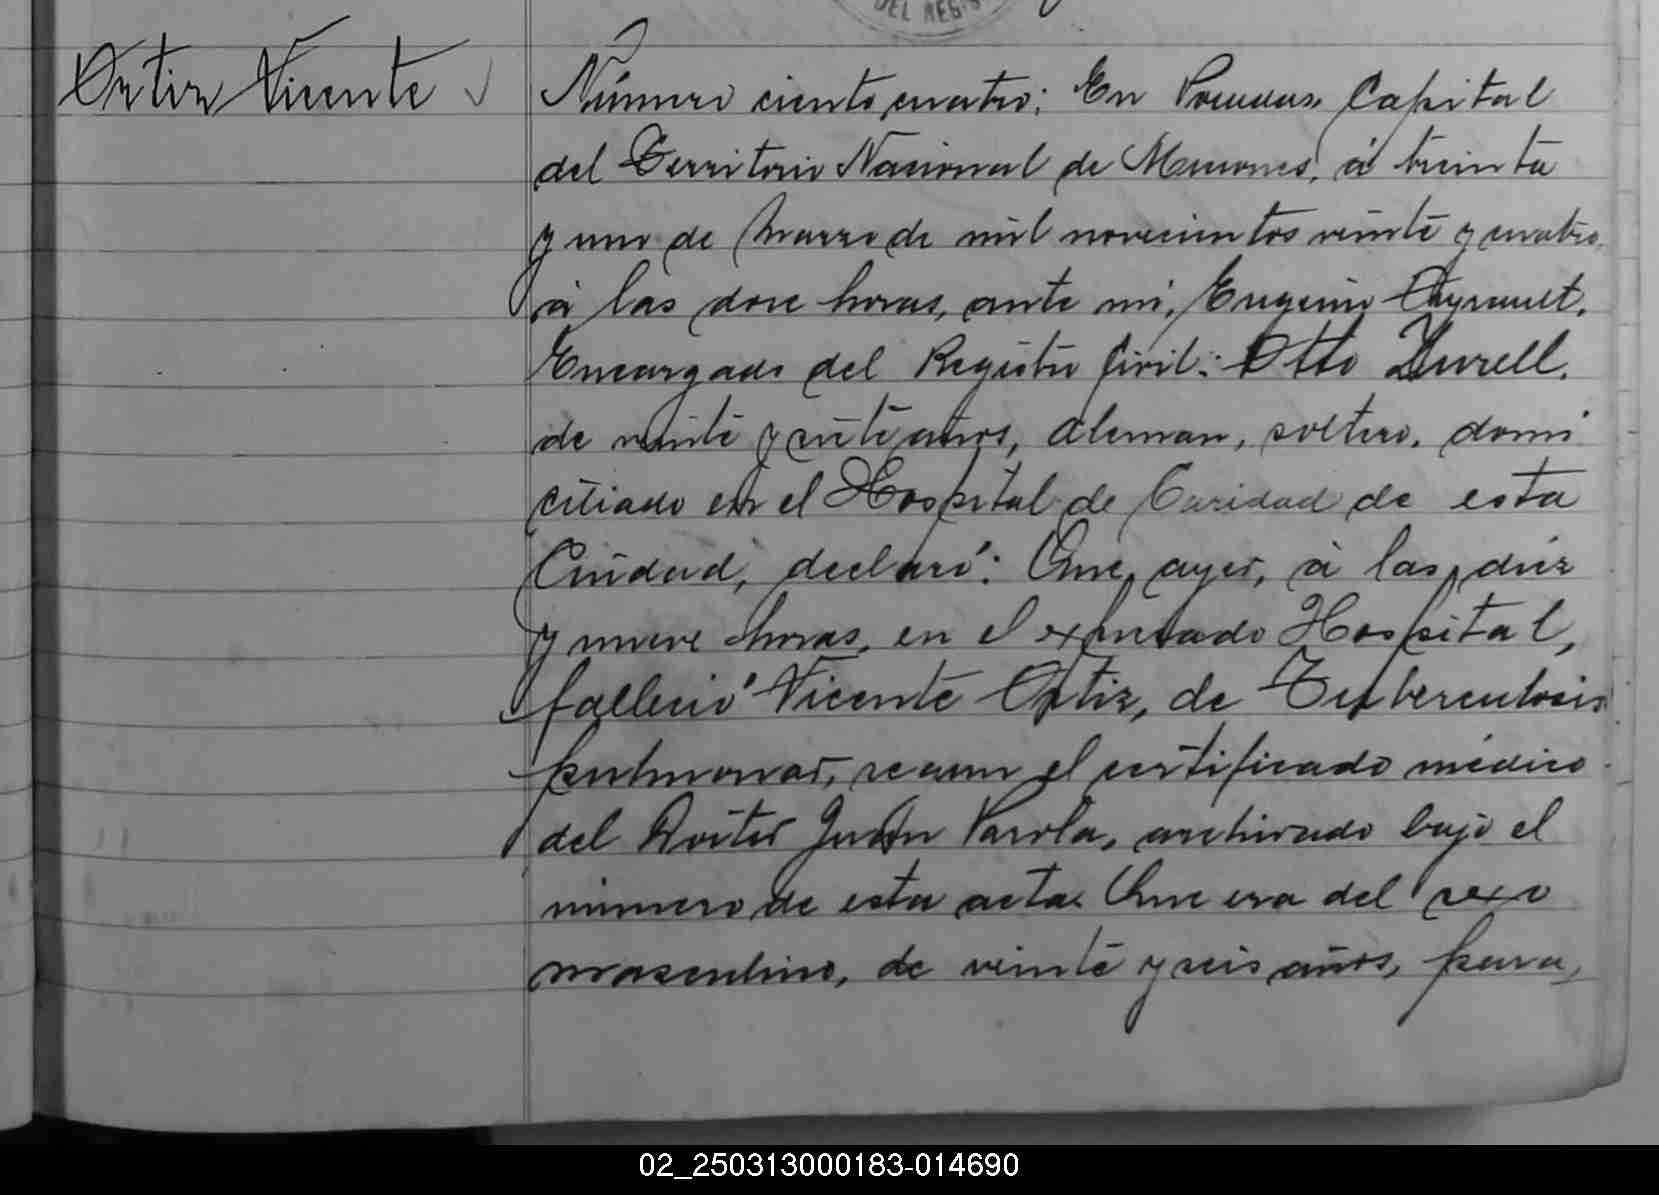 DEL REGIS
Ortiz Vicente
Número ciento cuatro: En Posadas, Capital
del Territorio Nacional de Misiones, á treinta
y uno de Marzo de mil novecientos veinte y cuatro,
á las doce horas, ante mi, Eugenio
Encargado del Registro Civil: Otto
de veinte y siete años, Aleman, soltero, domi
ciliado en el Hospital de Caridad de esta
Ciudad, declaró: Que, ayer, á las diez
y nueve horas, en el expresado Hospital,
falleció Vicente Ortiz, de Tuberculosis
pulmonar, segun el certificado médico
del Doctor Juan Parola, archivado bajo el
número de esta acta. Que era del sexo
masculino, de veinte y seis años, para,
02_250313000183-014690